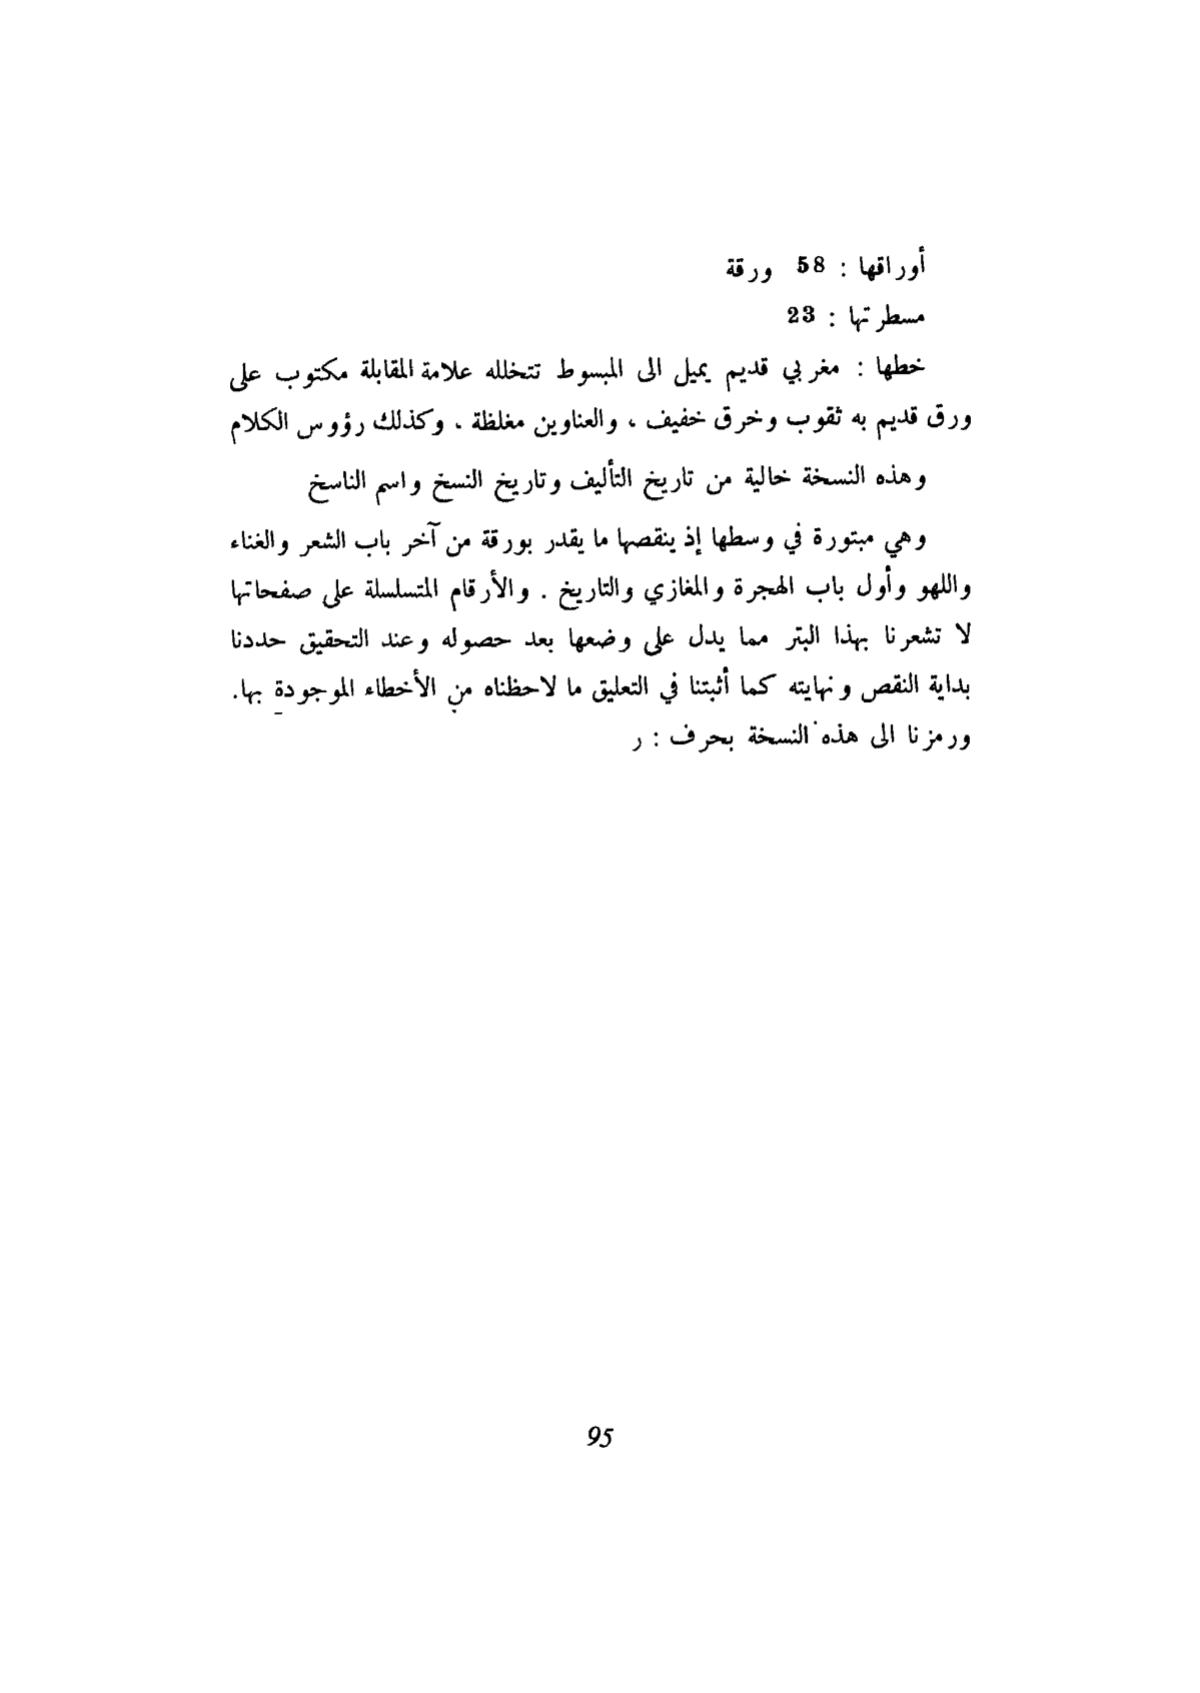 أوراقها : 58 ورقة
مسطرتها : 23
خطها : مغربي قديم يميل الى المبسوط تتخلله علامة المقابلة مكتوب على
ورق قديم به ثقوب وخرق خفيف ، والعناوين مغلظة . وكذلك رؤوس الكلام
وهذه النسخة خالية من تاريخ التأليف وتاريخ النسخ واسم الناسخ
وهي مبتورة في وسطها إذ ينقصها ما يقدر بورقة من آخر باب الشعر والغناء
واللهو وأول باب الهجرة والمغازي والتاريخ . والأرقام المتسلسلة على صفحاتها
لا تشعرنا بهذا البتر مما يدل على وضعها بعد حصوله وعند التحقيق حددنا
بداية النقص ونهايته كما أثبتنا في التعليق ما لاحظناه من الأخطاء الموجودة بها.
ورمزنا الى هذه النسخة بحرف : ر
95